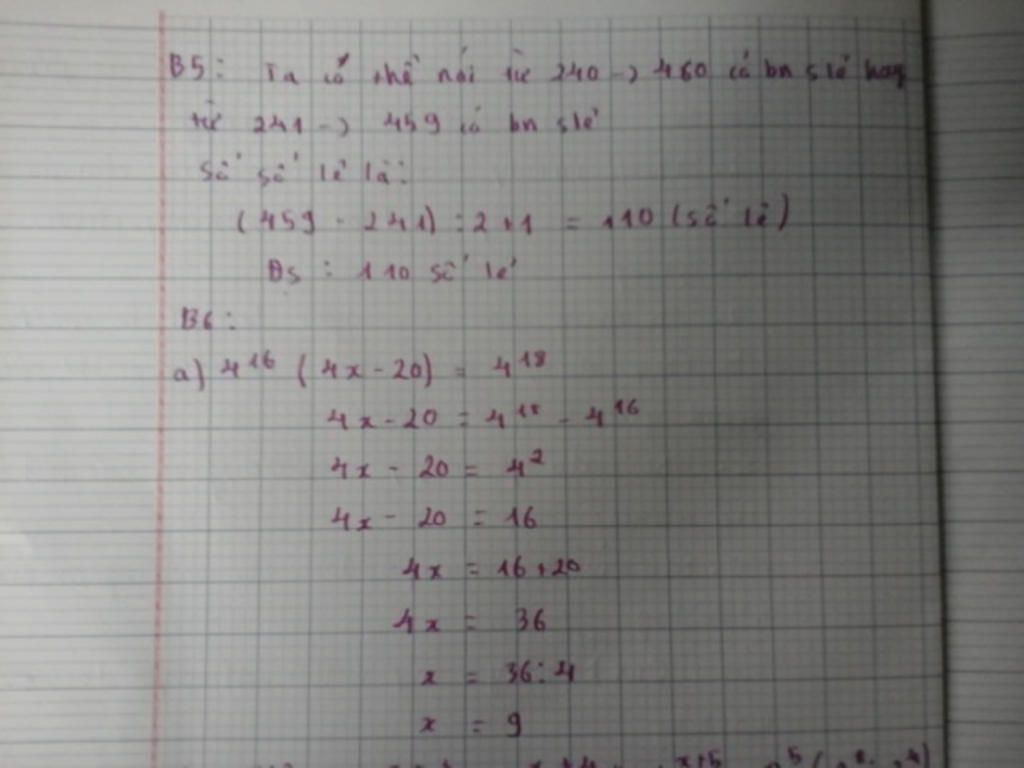 B5: Ta có thể nói từ 240 -> 460 có bn số lẻ hay
từ 241 -> 459 có bn số lẻ
Số số lẻ là:
(459 - 241) : 2 + 1 = 110 (số lẻ)
Đs : 110 số lẻ
B6:
a) 4¹⁶ (4x - 20) = 4¹⁸
4x - 20 = 4¹⁸ - 4¹⁶
4x - 20 = 4²
4x - 20 = 16
4x = 16 + 20
4x = 36
x = 36 : 4
x = 9